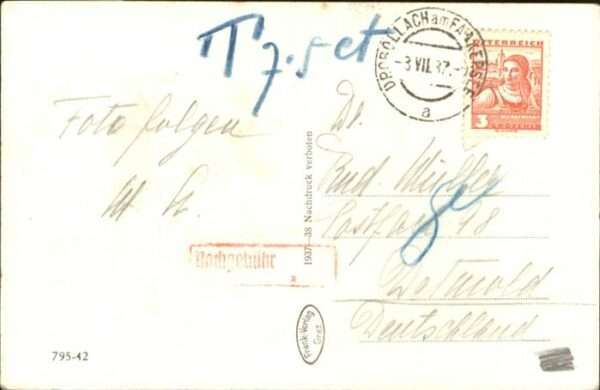 T 7.5 ct
DROBOLLACH am FAAKERSEE
-3 VII 37.-9
a
ÖSTERREICH
3
GROSCHEN
Foto folgen
Dr.
Rud. Müller
Postfach 18
Detmold
Deutschland
Nachgebühr
1937-38 Nachdruck verboten
Frank-Verlag
Graz
795-42